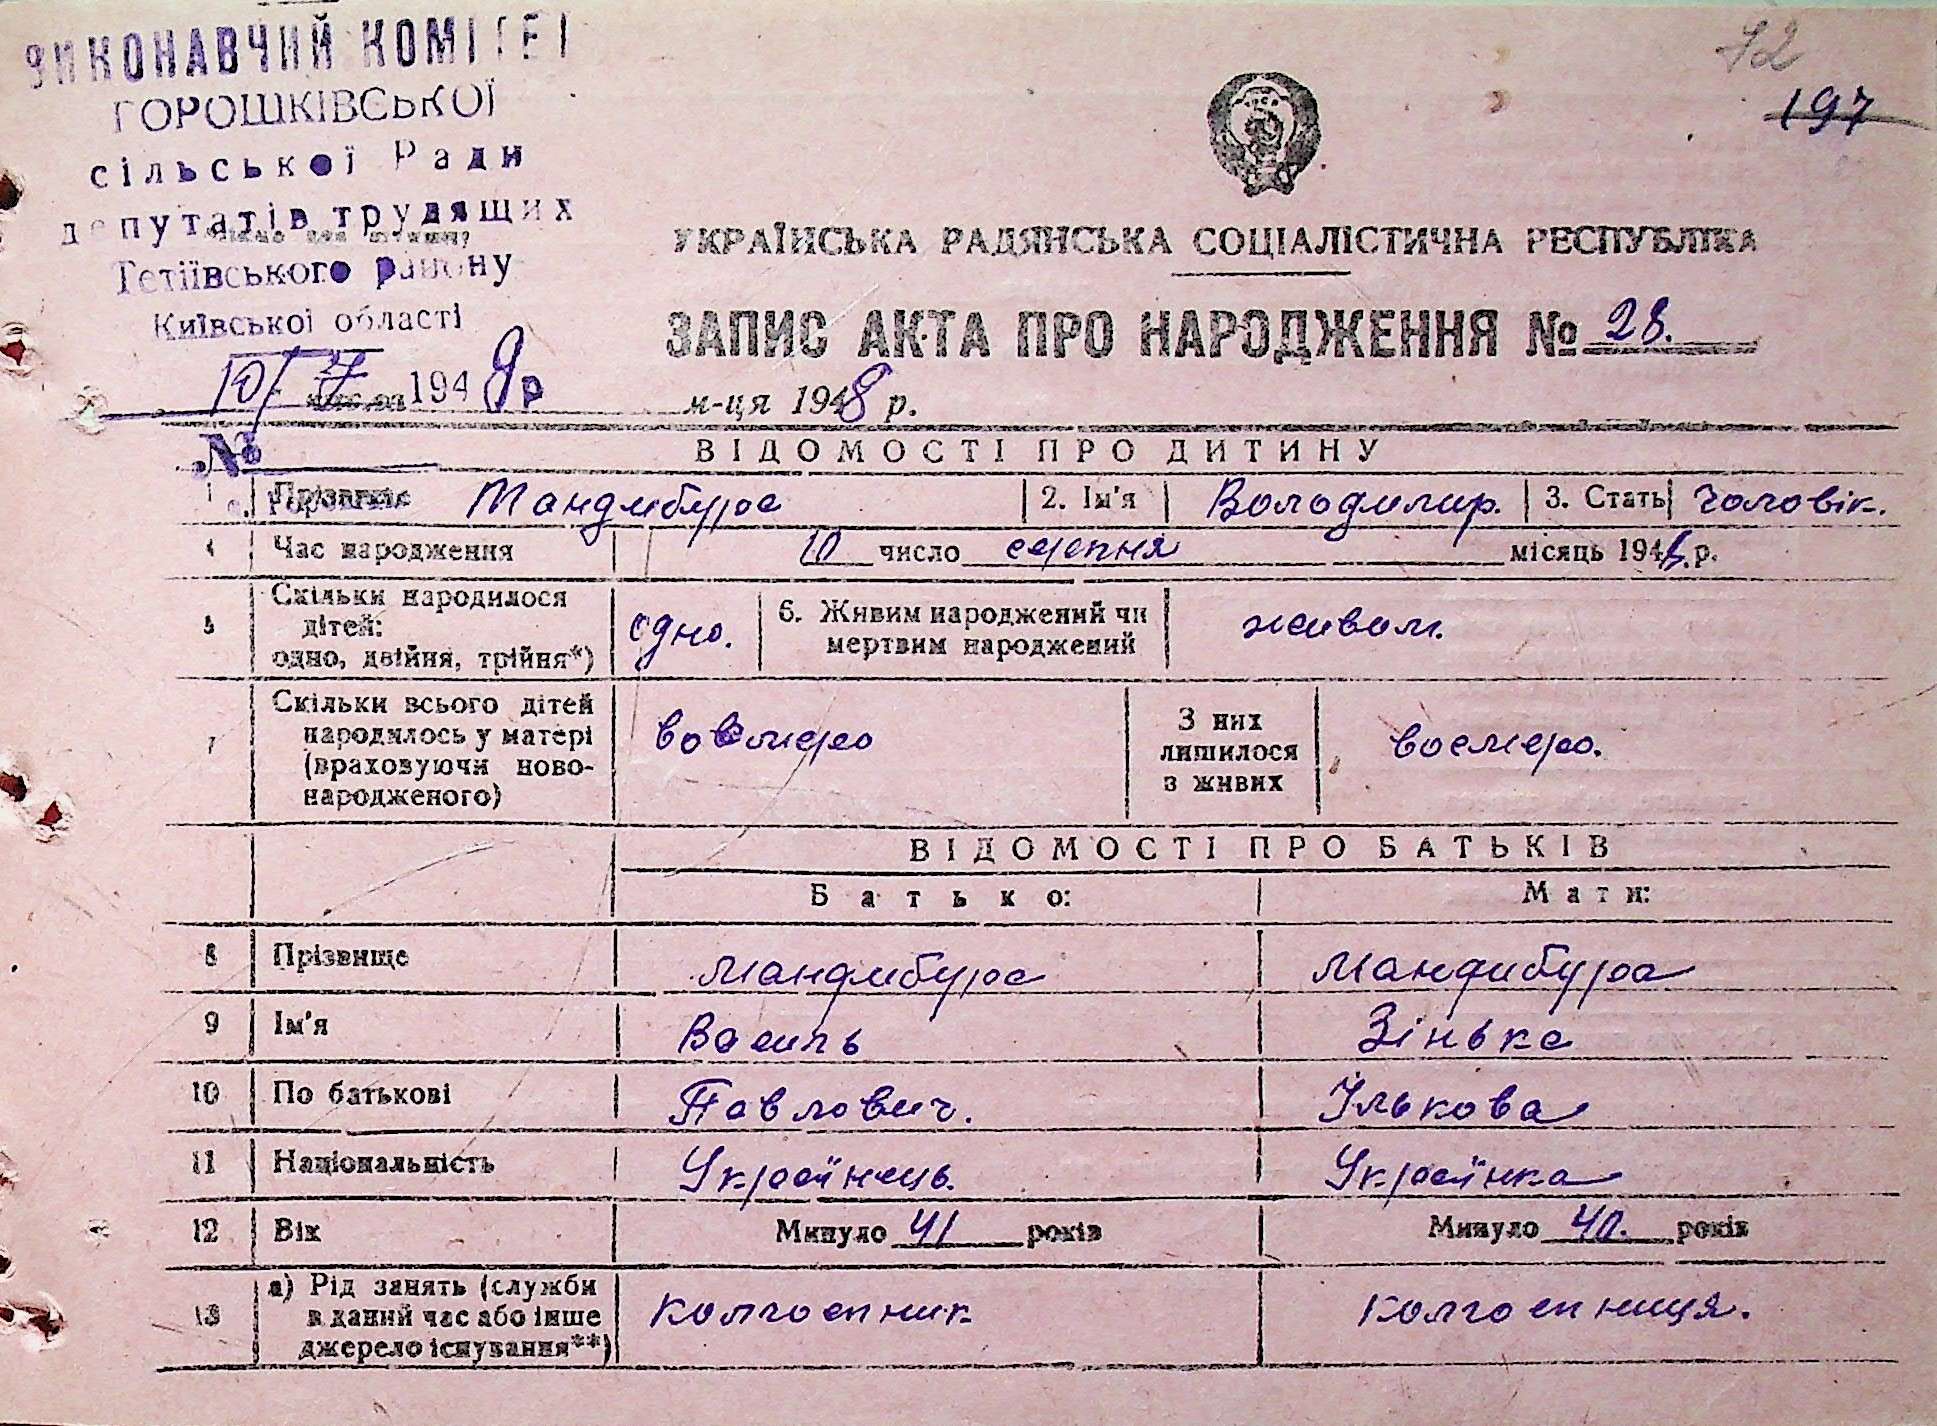 ВИКОНАВЧИЙ КОМІТЕТ
ГОРОШКІВСЬКОЇ
сільської Ради
депутатів трудящих
Тетіївського району
Київської області
72
197
УКРАЇНСЬКА РАДЯНСЬКА СОЦІАЛІСТИЧНА РЕСПУБЛІКА
ЗАПИС АКТА ПРО НАРОДЖЕННЯ № 28.
10/ 1949р м-ця 1948 р.
№
ВІДОМОСТІ ПРО ДИТИНУ
1 Прізвище Мандибура 2. Ім'я Володимир. 3. Стать чоловік.
4 Час народження 10 число серпня місяць 1948 р.
5 Скільки народилося дітей: одно, двійня, трійня*) одно. 6. Живим народжений чи мертвим народжений живом.
7 Скільки всього дітей народилось у матері (враховуючи новонародженого) восмеро З них лишилося в живих восмеро.
ВІДОМОСТІ ПРО БАТЬКІВ
Батько: Мати:
8 Прізвище Мандибура Мандибура
9 Ім'я Василь Зінька
10 По батькові Павлович. Ількова
11 Національність Українець. Українка
12 Вік Минуло 41 років Минуло 40. років
13 а) Рід занять (служби в даний час або інше джерело існування**) колгоспник колгоспниця.